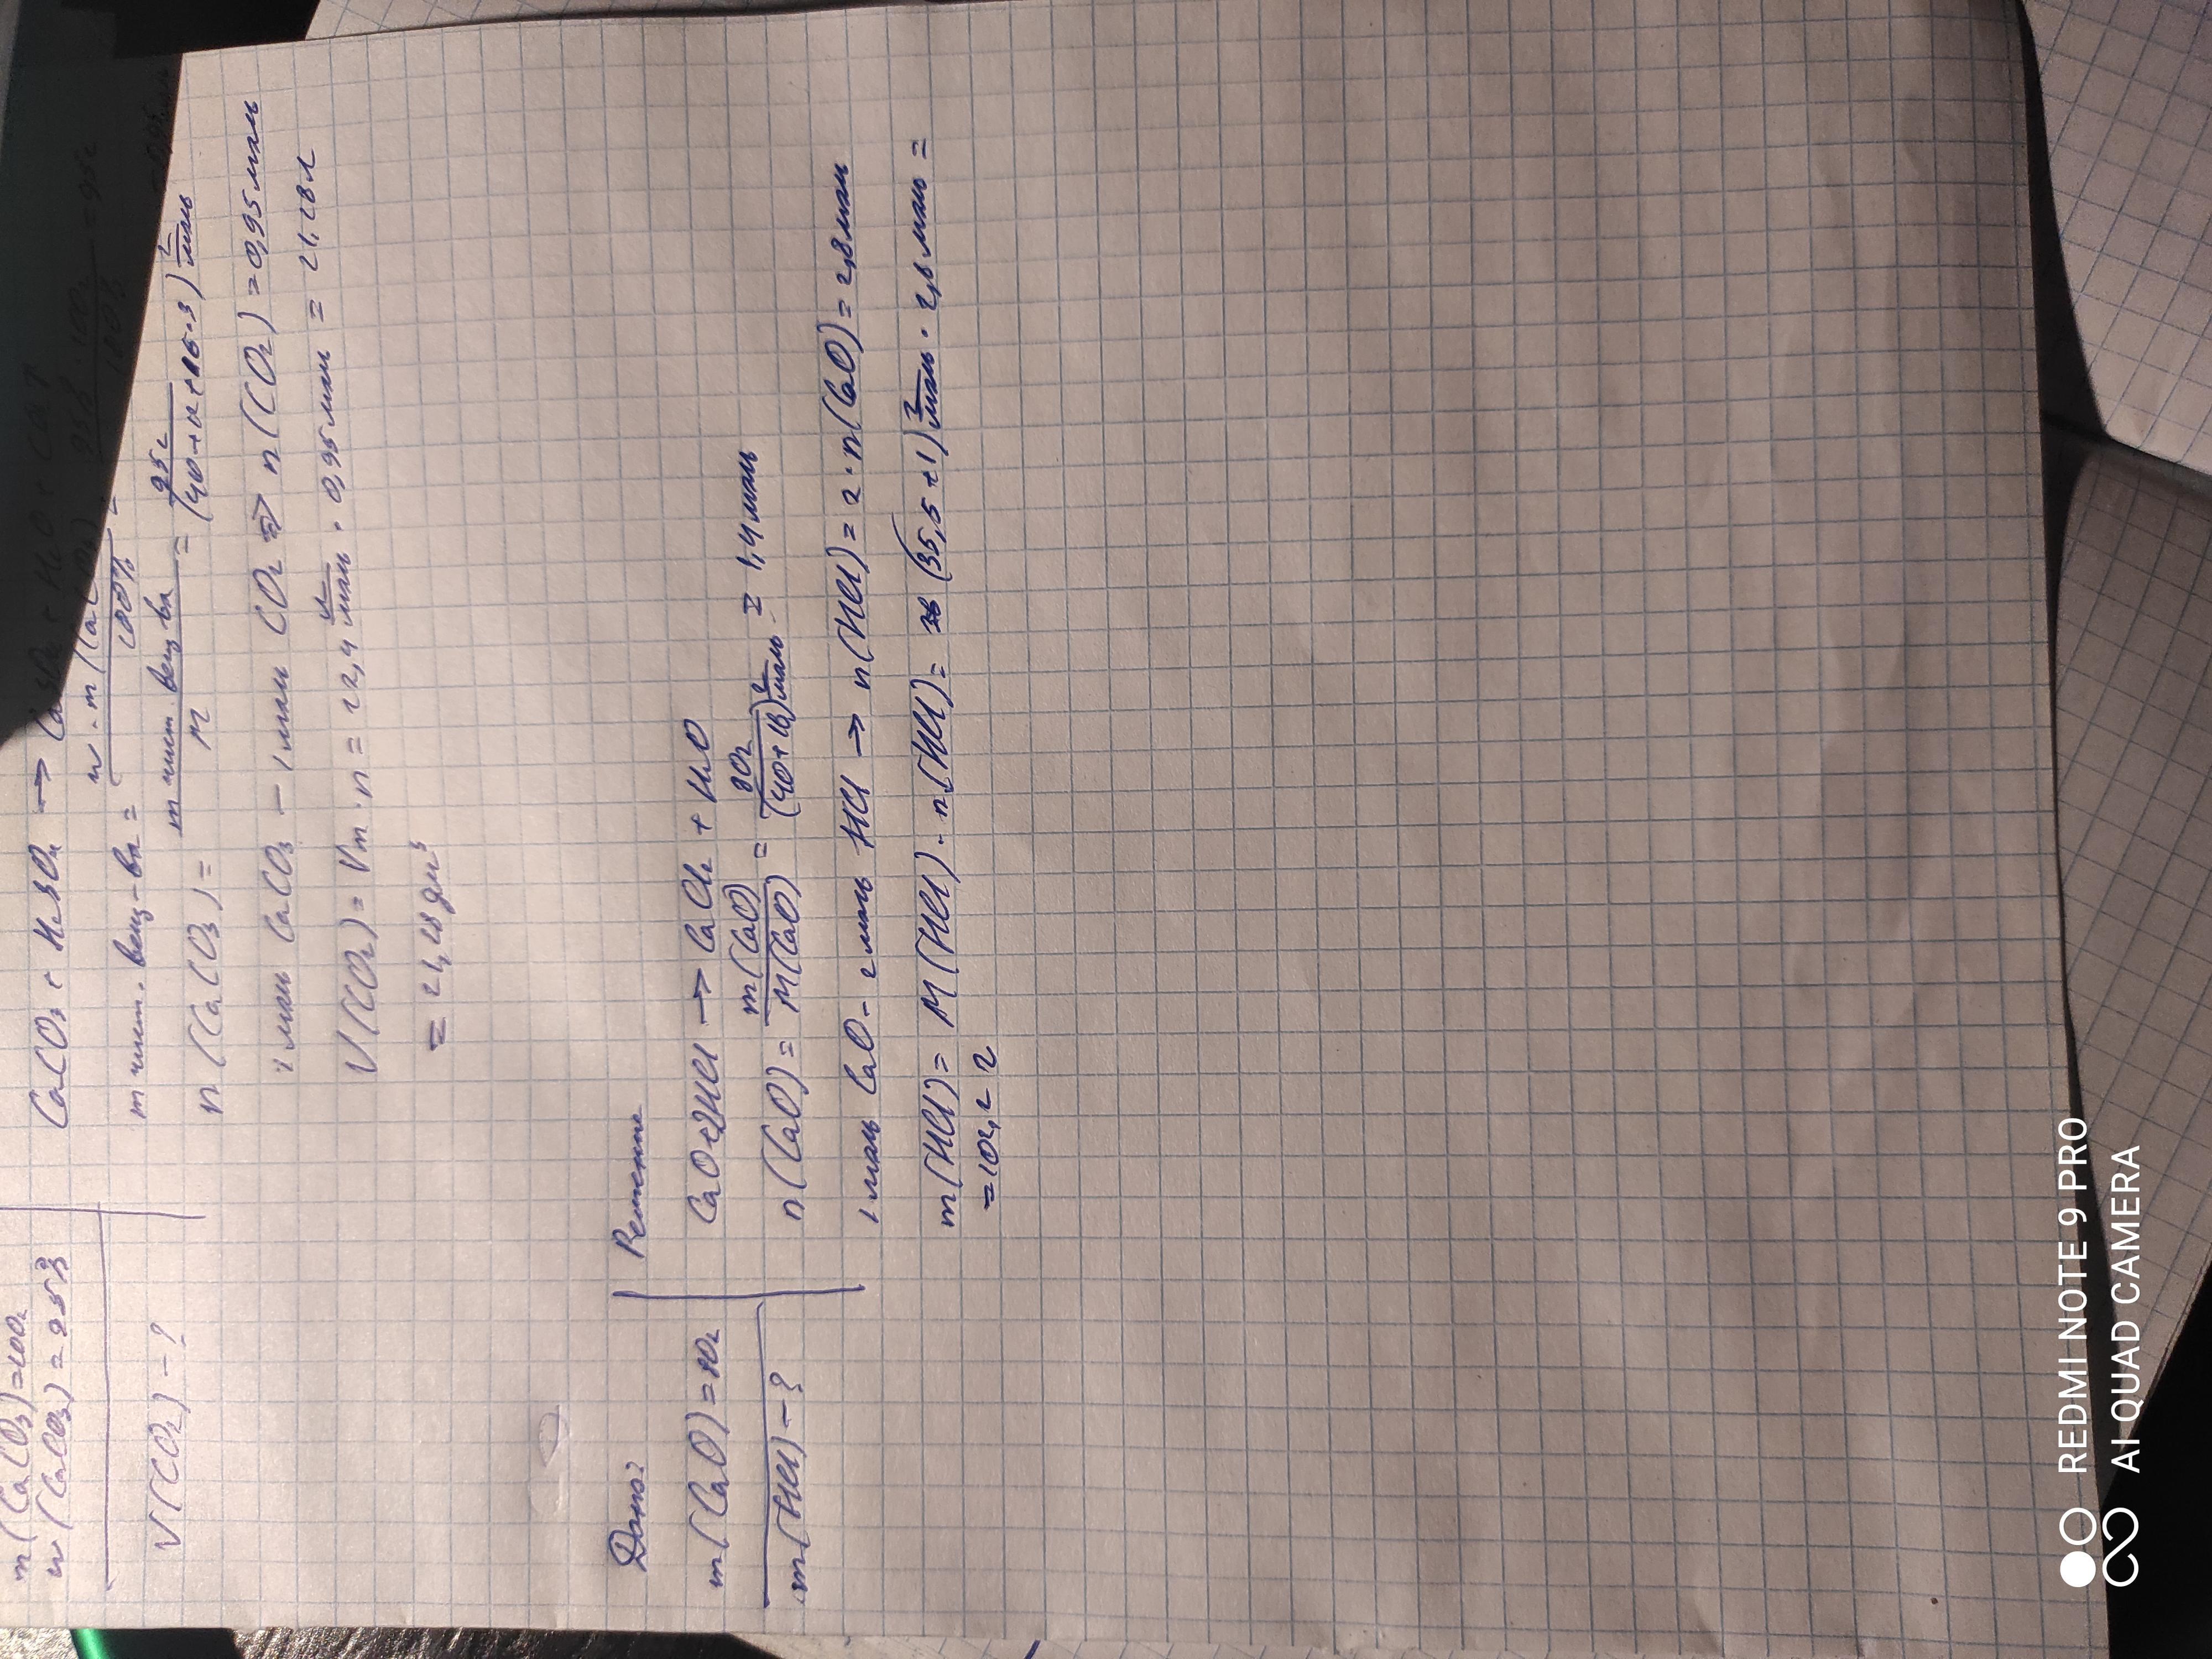 m(CaCO₃)=100г
w(CaCO₃)=95%
V(CO₂)-?
CaCO₃ + H₂SO₄ → CaSO₄ + H₂O + CO₂↑
m чист. вещ-ва = w · m(CaCO₃) / 100% = 95% · 100г / 100% = 95г
n(CaCO₃) = m чист. вещ ва / M = 95г / (40+12+16·3) г/моль = 0,95
1 моль CaCO₃ - 1 моль CO₂ ⇒ n(CO₂) = 0,95 моль
V(CO₂) = Vm · n = 22,4 л/моль · 0,95 моль = 21,28 л
= 21,28 дм³
Дано:
m(CaO)=80г
m(HCl)-?
Решение
CaO+2HCl → CaCl₂ + H₂O
n(CaO) = m(CaO) / M(CaO) = 80г / (40+16) г/моль = 1,4 моль
1 моль CaO - 2 моль HCl → n(HCl) = 2·n(CaO) = 2,8 моль
m(HCl) = M(HCl) · n(HCl) = (35,5+1) г/моль · 2,8 моль =
=102,2 г
REDMI NOTE 9 PRO
AI QUAD CAMERA